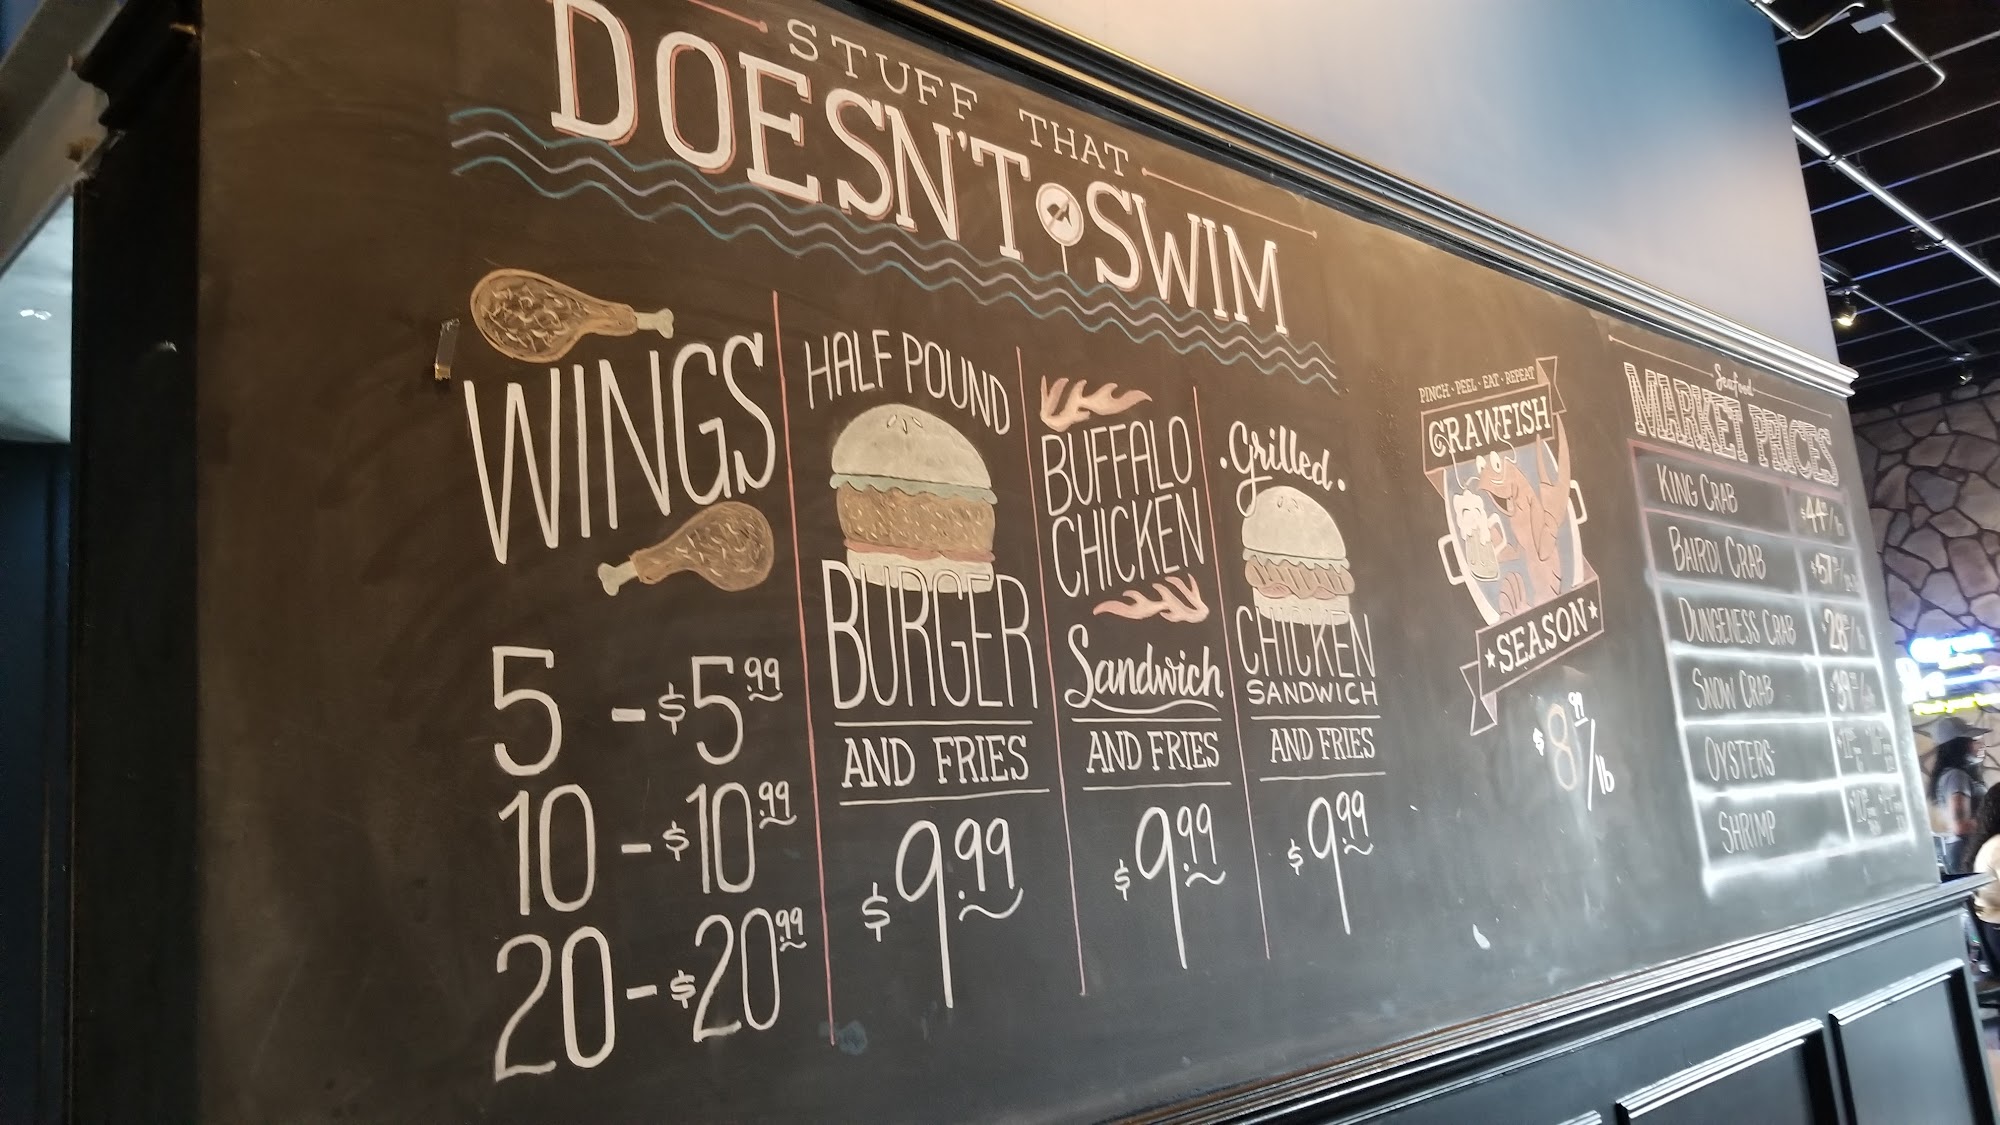 STUFF THAT
DOESN'T SWIM
WINGS
5 - $5.99
10 - $10.99
20 - $20.99
HALF POUND
BURGER
AND FRIES
$9.99
BUFFALO
CHICKEN
Sandwich
AND FRIES
$9.99
Grilled
CHICKEN
SANDWICH
AND FRIES
$9.99
PINCH · PEEL · EAT · REPEAT
CRAWFISH
SEASON
$8.99/lb
Seafood
MARKET PRICES
KING CRAB
BAIRDI CRAB
DUNGENESS CRAB
SNOW CRAB
OYSTERS
SHRIMP